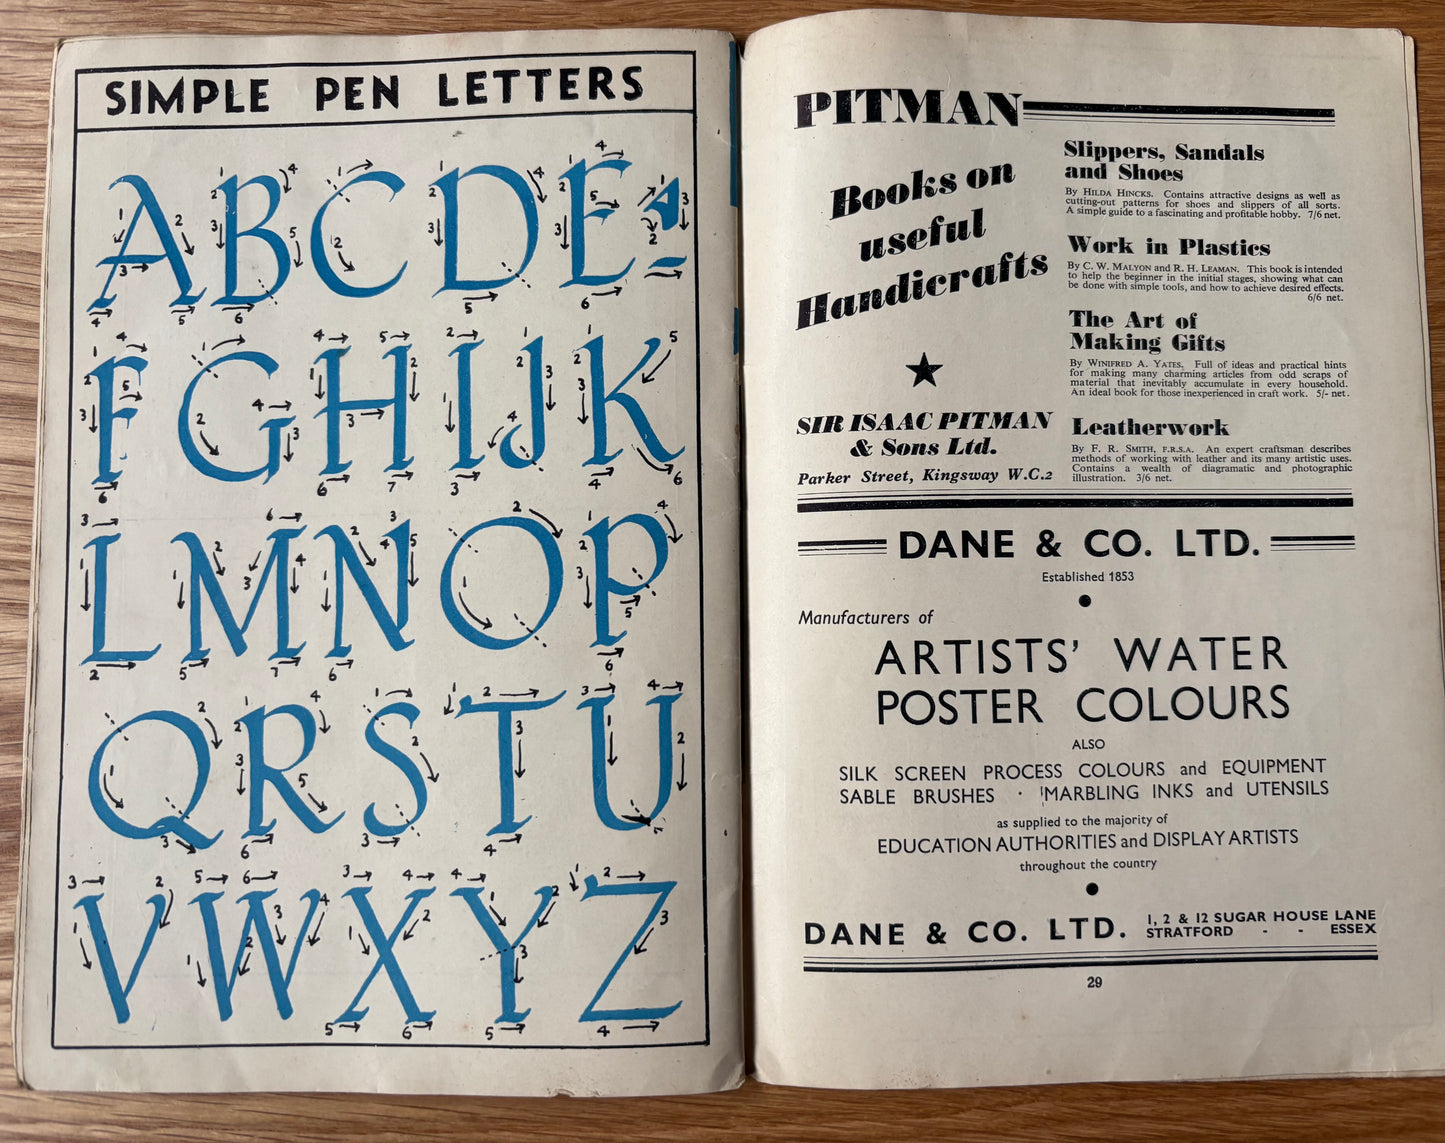 SIMPLE PEN LETTERS
A B C D E
F G H I J K
L M N O P
Q R S T U
V W X Y Z
PITMAN
Books on
useful
Handicrafts
SIR ISAAC PITMAN
& Sons Ltd.
Parker Street, Kingsway W.C.2
Slippers, Sandals
and Shoes
By HILDA HINCKS. Contains attractive designs as well as
cutting-out patterns for shoes and slippers of all sorts.
A simple guide to a fascinating and profitable hobby. 7/6 net.
Work in Plastics
By C. W. MALYON and R. H. LEAMAN. This book is intended
to help the beginner in the initial stages, showing what can
be done with simple tools, and how to achieve desired effects.
6/6 net.
The Art of
Making Gifts
By WINIFRED A. YATES. Full of ideas and practical hints
for making many charming articles from odd scraps of
material that inevitably accumulate in every household.
An ideal book for those inexperienced in craft work. 5/- net.
Leatherwork
By F. R. SMITH, F.R.S.A. An expert craftsman describes
methods of working with leather and its many artistic uses.
Contains a wealth of diagramatic and photographic
illustration. 3/6 net.
DANE & CO. LTD.
Established 1853
Manufacturers of
ARTISTS' WATER
POSTER COLOURS
ALSO
SILK SCREEN PROCESS COLOURS and EQUIPMENT
SABLE BRUSHES · MARBLING INKS and UTENSILS
as supplied to the majority of
EDUCATION AUTHORITIES and DISPLAY ARTISTS
throughout the country
DANE & CO. LTD. 1, 2 & 12 SUGAR HOUSE LANE
STRATFORD - - ESSEX
29